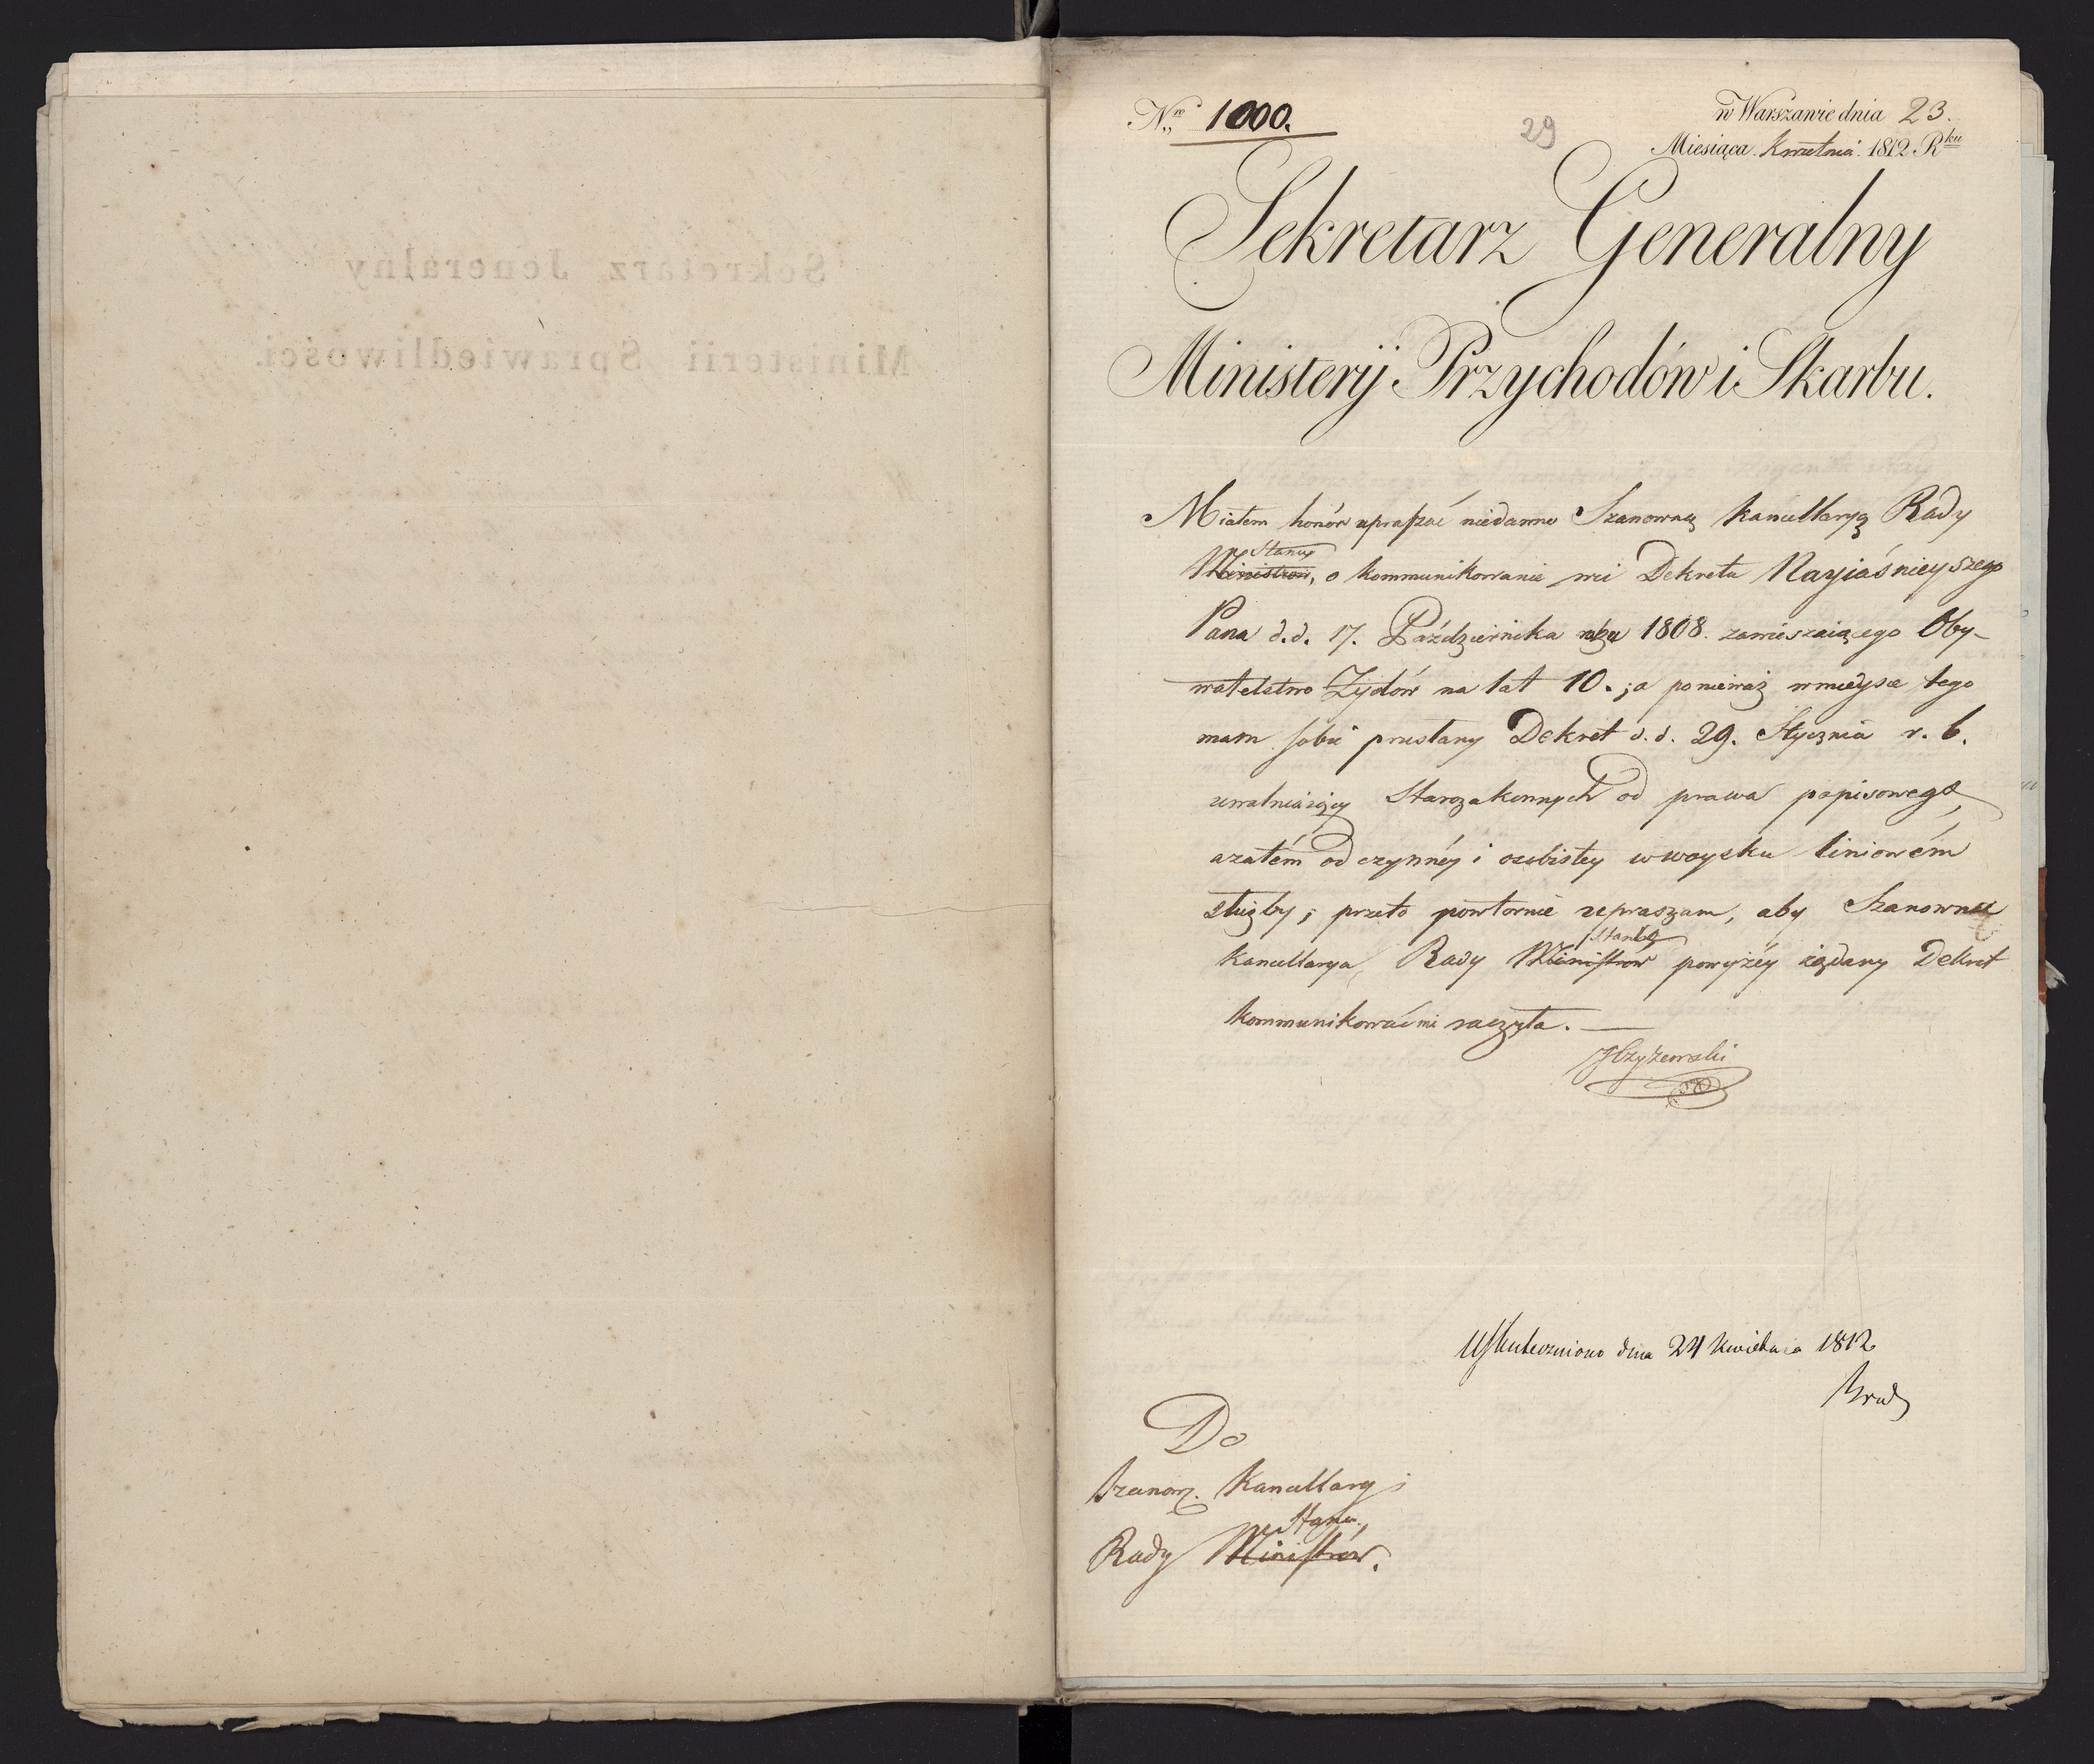 Nro 1000.
29
w Warszawie dnia 23.
Miesiąca Kwietnia 1812 Rku
Sekretarz Generalny
Ministerij Przychodów i Skarbu.
Miałem honór upraszać niedawno Szanowną Kancellaryą Rady
Stanu
Ministrow, o kommunikowanie mi Dekretu Nayiaśnieyszego
Pana d.d. 17. Października roku 1808. zawieszaiącego Oby-
watelstwo Zydów na lat 10.; a ponieważ w mieysce tego
mam sobie przesłany Dekret d.d. 29. Stycznia r. b.
uwalniaiący Starozakonnych od prawa popisowego,
azatém od czynnéy i osobistey w woysku liniowém
służby; przeto powtornie upraszam, aby Szanowna
Stanu
Kancellarya Rady Ministrow powyżéy żądany Dekret
kommunikować mi raczyła. —
Uskuteczniono dnia 24 Kwietnia 1812
Do
Szanow. Kancellaryi
Stanu
Rady Ministrów.
Sekretarz Jeneralny
Ministerii Sprawiedliwości.